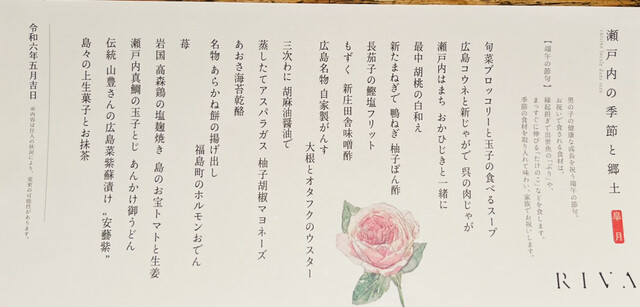 瀬戸内の季節と郷土
皐月
【端午の節句】
男の子の健康な成長を祝う端午の節句。
お祝いで食される食材は、
縁起担ぎで出世魚の「ぶり」や、
まっすぐに伸びる「たけのこ」などを食します。
季節の食材を取り入れて味わい、家族でお祝いします。
RIVA
旬菜ブロッコリーと玉子の食べるスープ
広島コウネと新じゃがで 呉の肉じゃが
瀬戸内はまち おかひじきと一緒に
最中 胡桃の白和え
新たまねぎで 鴨ねぎ 柚子ぽん酢
長茄子の鰹塩フリット
もずく 新庄田舎味噌酢
広島名物 自家製がんす
大根とオタフクのウスター
三次わに 胡麻油醤油で
蒸したてアスパラガス 柚子胡椒マヨネーズ
あおさ海苔乾酪
名物 あらかね餅の揚げ出し
福島町のホルモンおでん
苺
岩国 高森鶏の塩麹焼き 島のお宝トマトと生姜
瀬戸内真鯛の玉子とじ あんかけ御うどん
伝統 山豊さんの広島菜紫蘇漬け “安藝紫”
島々の上生菓子とお抹茶
令和六年五月吉日
※内容は仕入の状況により、変更の可能性があります。